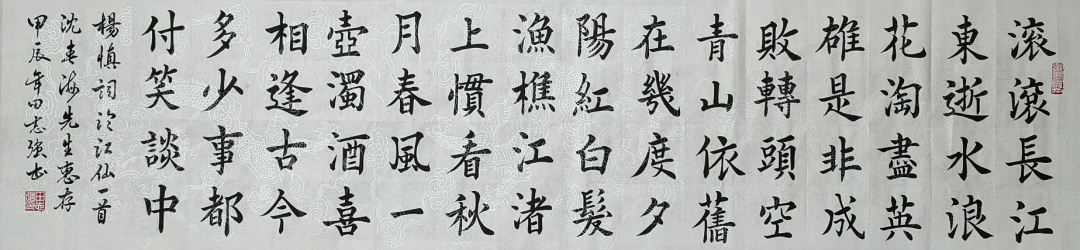 滚滚長江
東逝水浪
花淘盡英
雄是非成
敗轉頭空
青山依舊
在幾度夕
陽紅白髮
漁樵江渚
上慣看秋
月春風一
壺濁酒喜
相逢古今
多少事都
付笑談中
楊慎詞临江仙一首
沈春海先生惠存
甲辰年田志强书